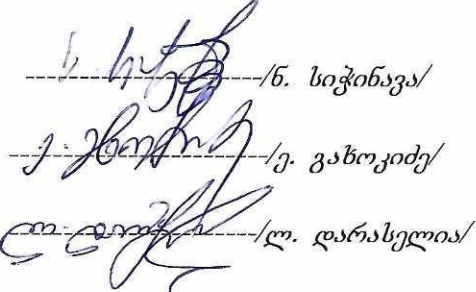 /ნ. სიჭინავა/
/ე. გახოკიძე/
/ლ. დარასელია/